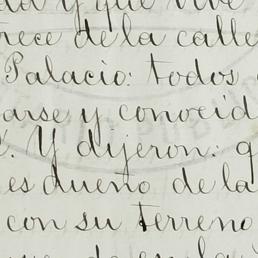 y que vive
trece de la calle
Palacio: todos
arse y conocid
Y dijeron: q
es dueño de la
con su terreno